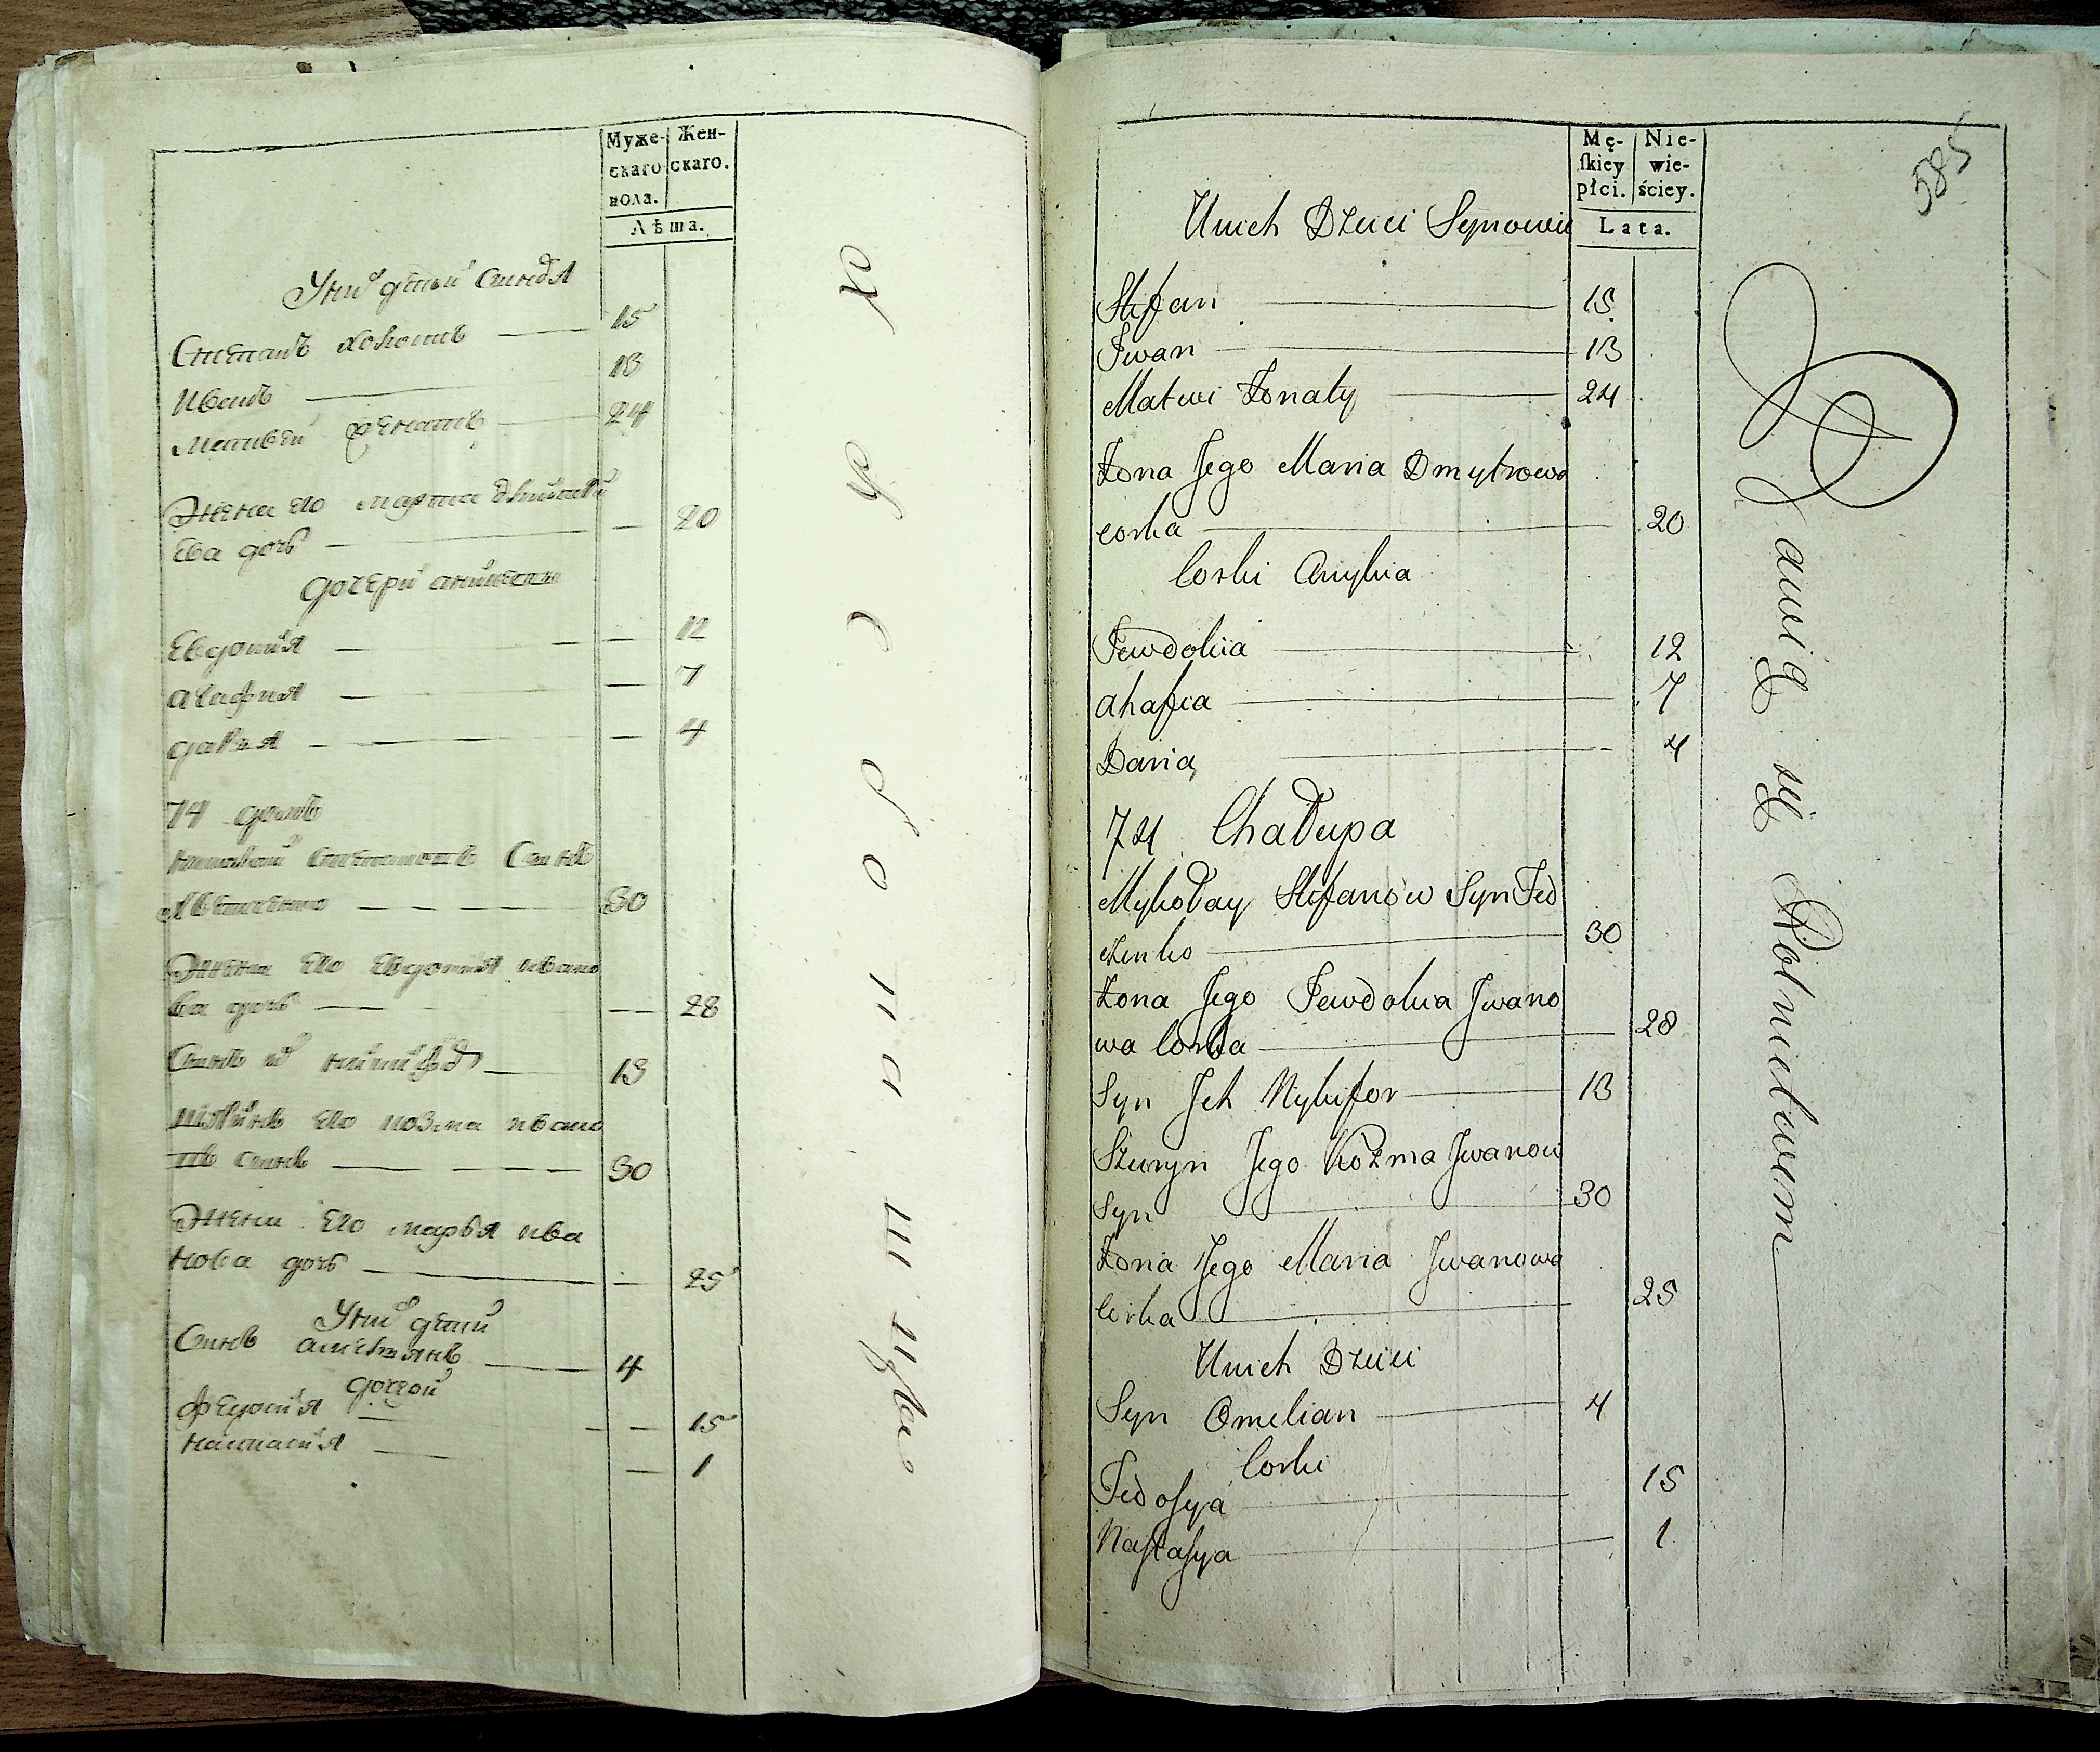 Муже-
скаго
пола.
Жен-
скаго.
Лѣта.
Степанъ холостъ 15
Иванъ 13
Матвей женатъ 24
Жена его
ева дочь 20
дочери
Евдокия 12
агафия 7
дарья 4
74 домъ
30
Жена его Евдокия ивано
ва дочь 28
Сынъ 13
его козма ивано
въ сынъ 30
Жена его марья ива
нова дочь 25
У них дети
Сынъ 4
дочери
Федосия 15
настасия 1
585
Mę-
ſkiey
płci.
Nie-
wie-
ściey.
Lata.
Unich Dzieci Synowie
Stefan 15
Jwan 13
Matwi Żonaty 24
Żona Jego Maria Dmytrowa
corka 20
Corki
Jewdokia 12
ahafia 7
Daria 4
74 Chałupa
Mykołay Stefanow Syn Fed
czenko 30
Żona Jego Jewdokia Jwano
wa Corka 28
Syn Jch Nykifor 13
Szuryn Jego Kozma Jwanow
Syn 30
Żona Jego Maria Jwanowa
Corka 25
Unich Dzieci
Syn Omelian 4
Corki
Fedoſya 15
Naſtaſya 1
Bawią się Rolnictwem